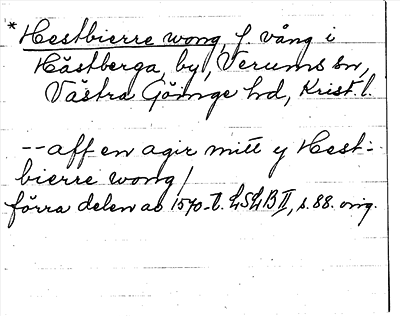 * Hestbierre wong, f. vång i
Hästberga, by, Verums sn,
Västra Göinge hd, Krist. l.
-- aff en agir mitt y Hest-
bierre wong /
förra delen av 1570-t. LSLB II, s. 88. orig.